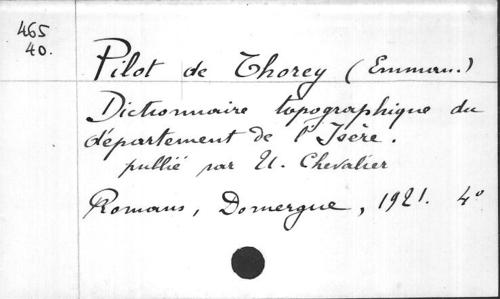 465
40.
Pilot de Thorey (Emman.)
Dictionnaire topographique du
département de l'Isère.
publié par U. Chevalier
Romans, Domergue, 1921. 4°